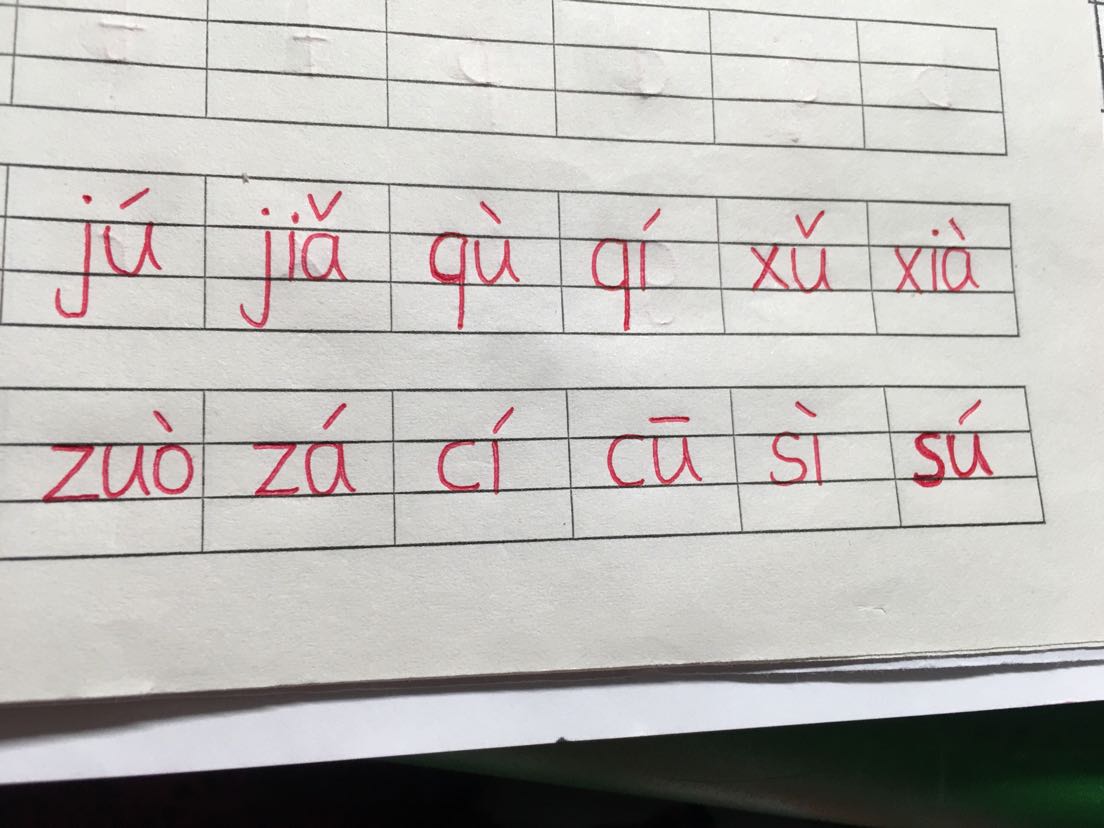 jú jiǎ qù qí xǔ xià
zuò zá cí cū sì sú